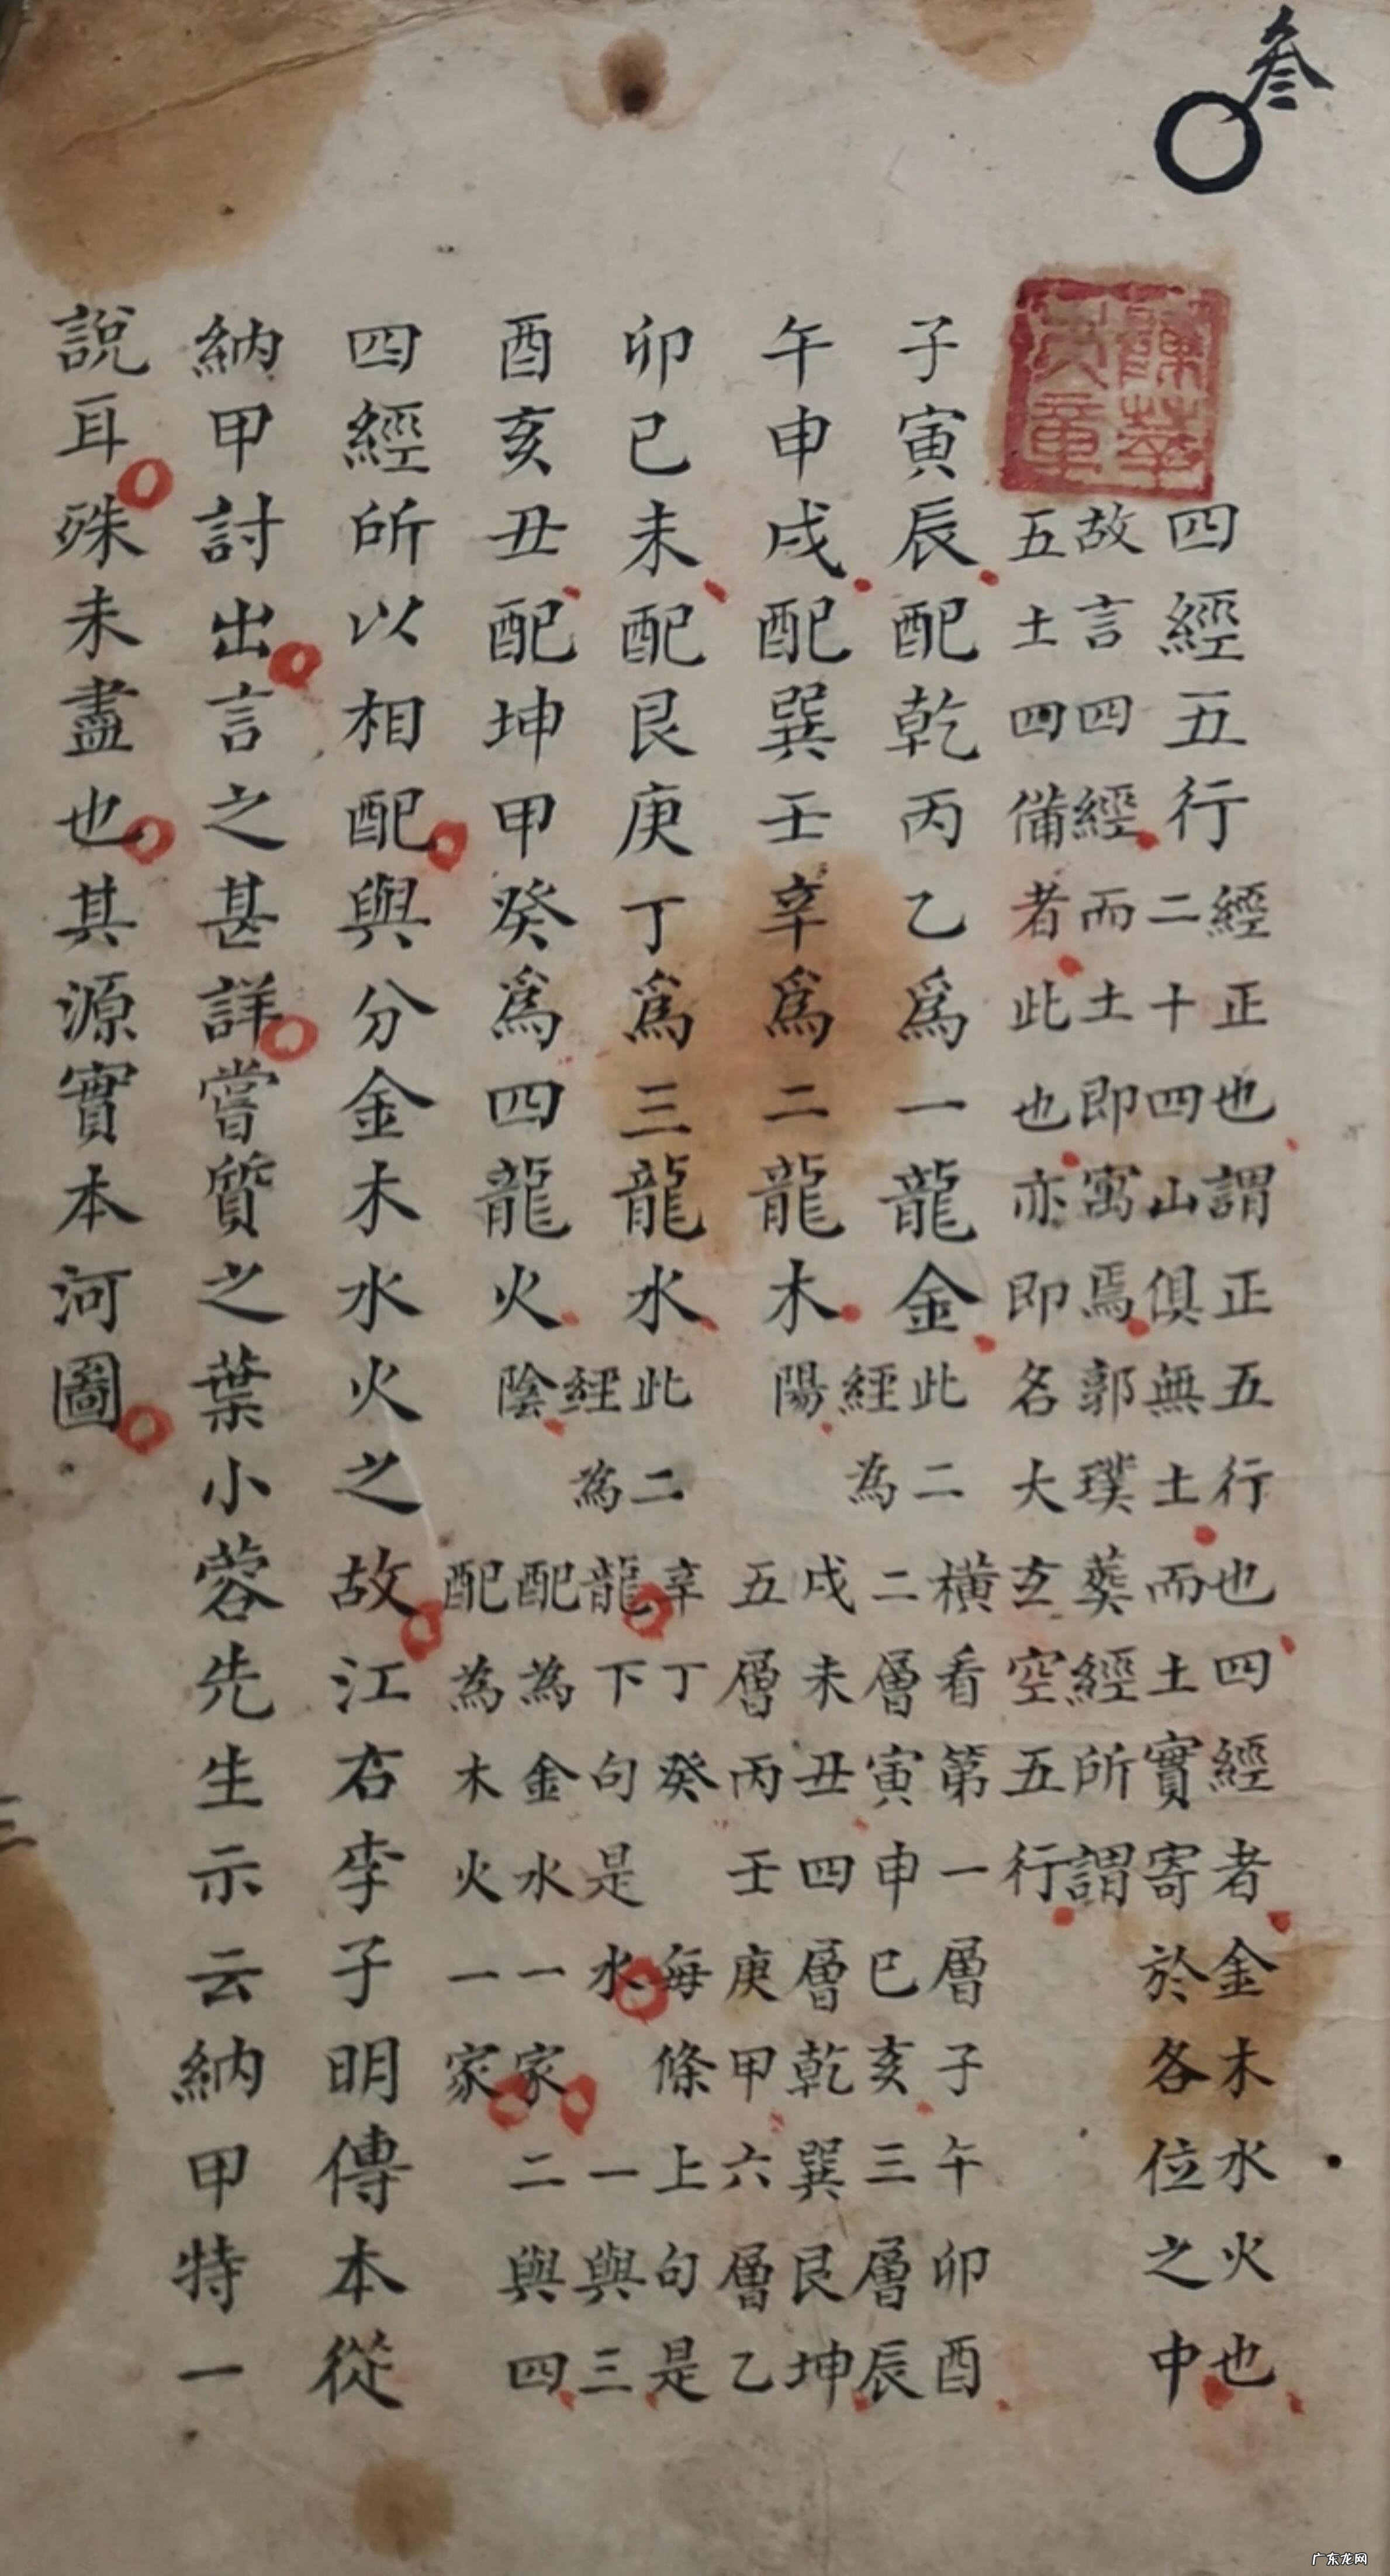 叁
四經五行
經正也謂正五行也四經者金木水火也
二十四山俱無土而土實寄於各位之中
故言四經而土即寓焉郭璞葬經所謂
五土四備者此也亦即名大玄空五行
子寅辰配乾丙乙爲一龍金
午申戌配巽壬辛爲二龍木
此二
經為
陽
卯巳未配艮庚丁爲三龍水
酉亥丑配坤甲癸爲四龍火
此二
經為
陰
橫看第一層子午卯酉
二層寅申巳亥三層辰
戌未丑四層乾巽艮坤
五層丙壬庚甲六層乙
辛丁癸 每條上句是
龍下句是水 一與三
配為金水一家二與四
配為木火一家
四經所以相配與分金木水火之故江右李子明傳本從
納甲討出言之甚詳嘗質之葉小蓉先生示云納甲特一
說耳殊未盡也其源實本河圖
广东龙网